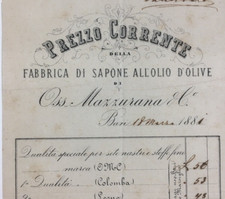 PREZZO CORRENTE
DELLA
FABBRICA DI SAPONE ALL'OLIO D'OLIVE
DI
Oss. Mazzurana & C.
Bari 18 Marzo 1881
Qualità speciale per sole nostre staffe fine
marca (EMC) L. 56
1a Qualità (Colomba) 53